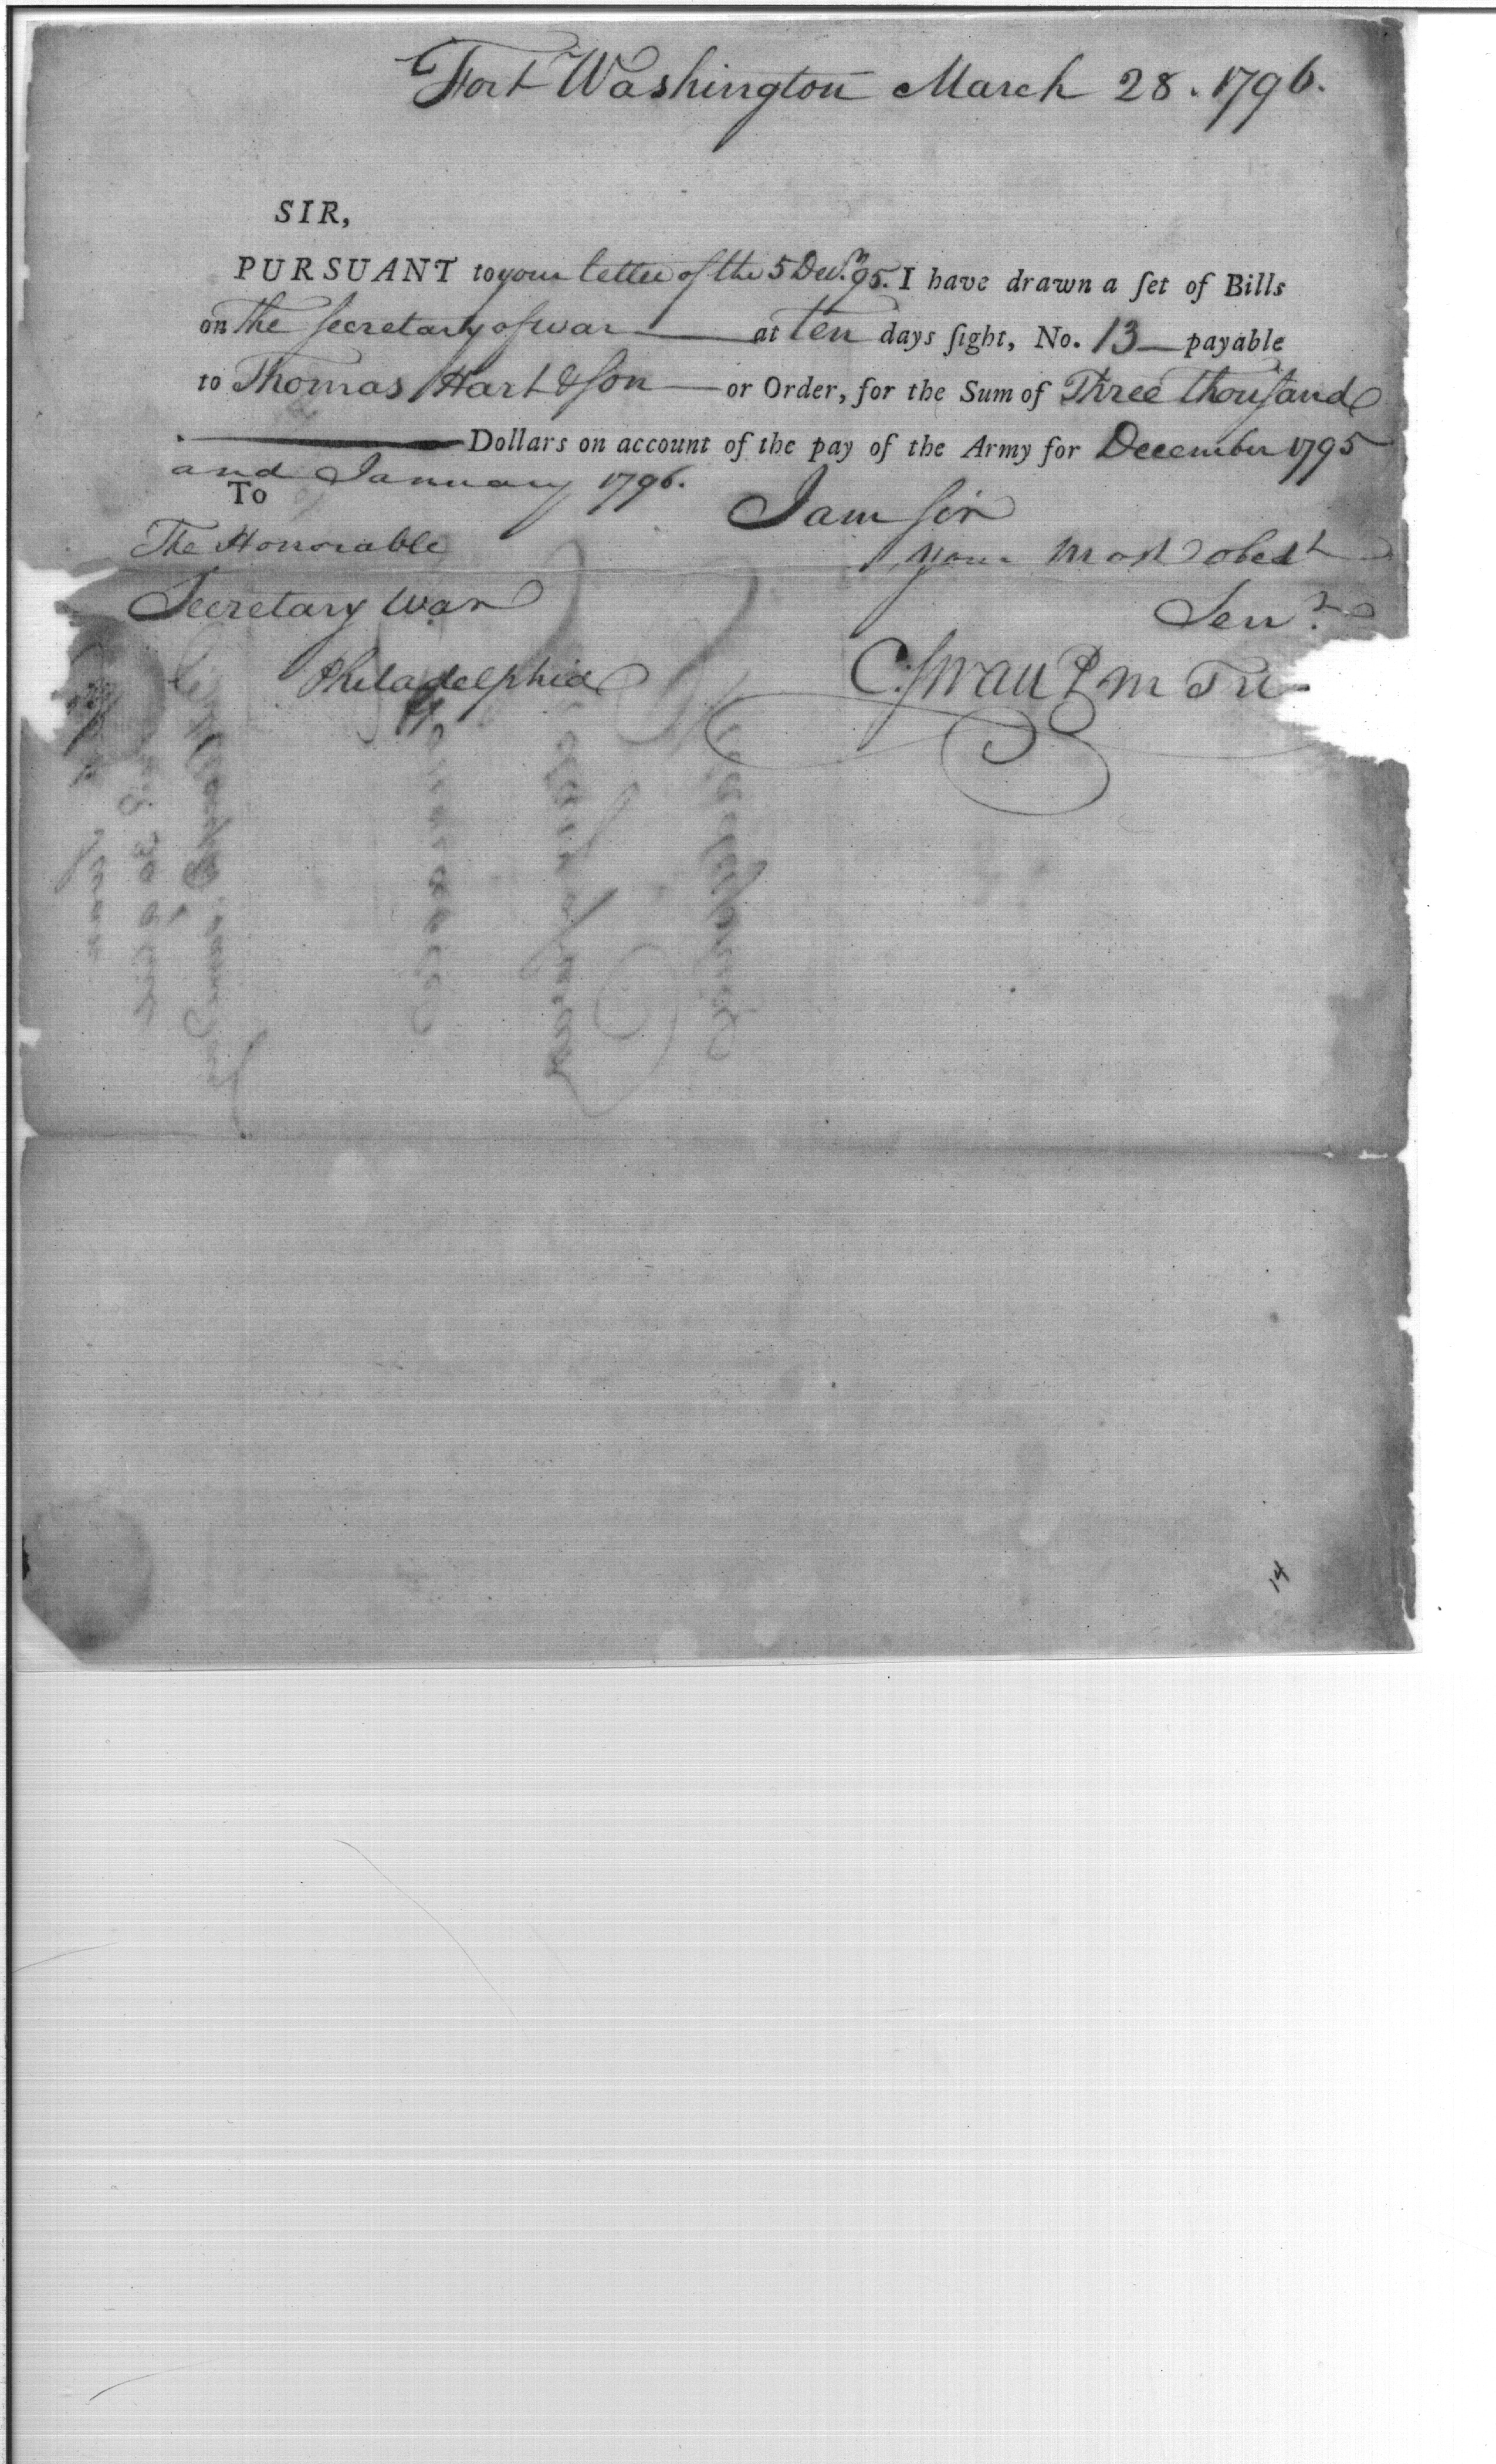 Fort Washington March 28. 1796.
SIR,
PURSUANT to your letter of the 5 Decr. 95. I have drawn a ſet of Bills
on The ſecretary of war at ten days ſight, No. 13 payable
to Thomas Hart & ſon or Order, for the Sum of Three thouſand
Dollars on account of the pay of the Army for December 1795
and January 1796.
To
I am ſir
The Honorable
your most obedt
Secretary War
Servt
Philadelphia
C. Swan P M Tr
14